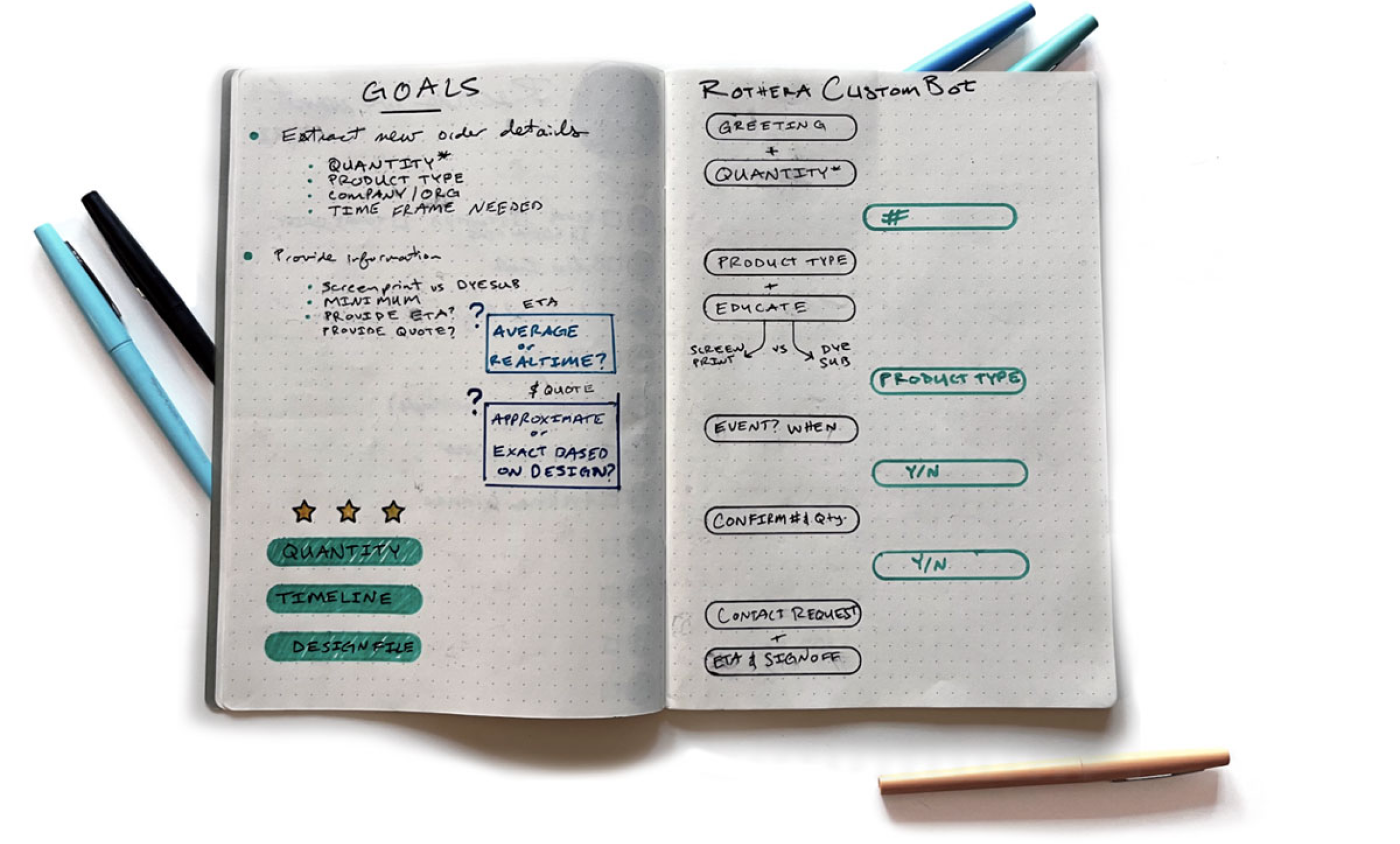 GOALS
Extract new order details
QUANTITY*
PRODUCT TYPE
COMPANY/ORG
TIME FRAME NEEDED
Provide Information
Screenprint vs DYESUB
MINIMUM
PROVIDE ETA?
PROVIDE QUOTE?
? ETA
AVERAGE
or
REALTIME?
? $ QUOTE
APPROXIMATE
or
EXACT BASED
ON DESIGN?
QUANTITY
TIMELINE
DESIGN FILE
ROTHERA CUSTOM BOT
GREETING
+
QUANTITY*
#
PRODUCT TYPE
+
EDUCATE
SCREEN
PRINT
VS
DYE
SUB
PRODUCT TYPE
EVENT? WHEN
Y/N
CONFIRM # & Qty.
Y/N
CONTACT REQUEST
+
ETA & SIGNOFF